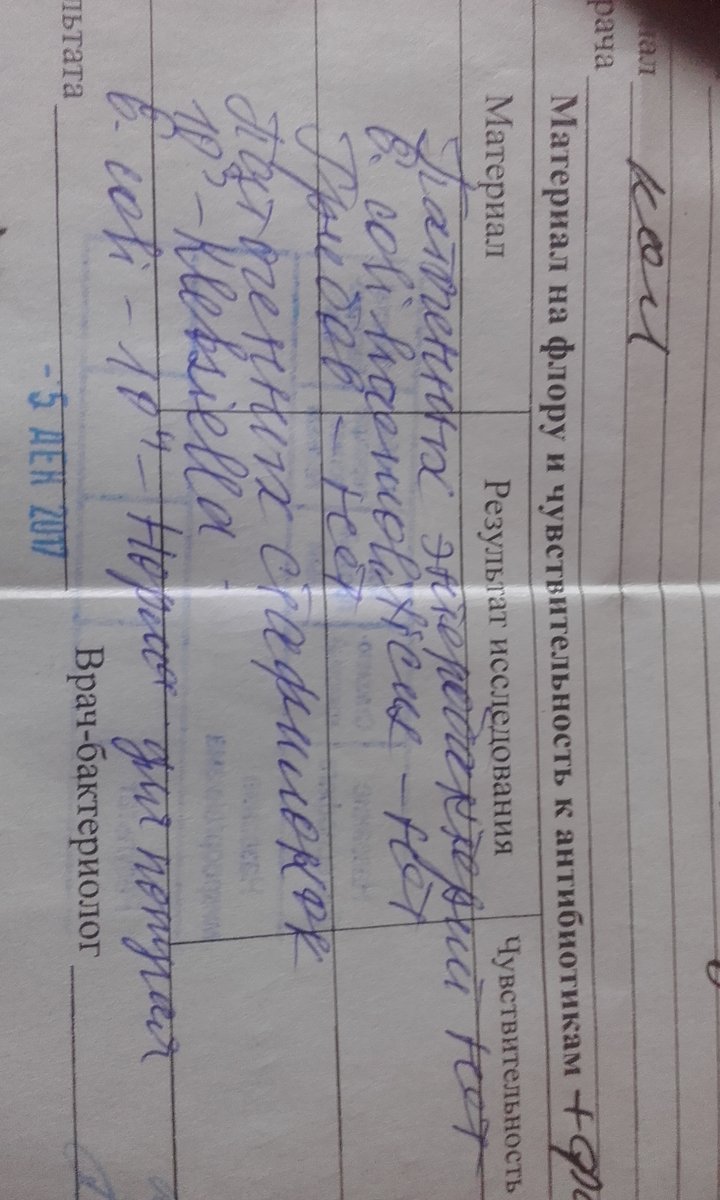 кал
рача
Материал на флору и чувствительность к антибиотикам +
Материал Результат исследования Чувствительность
Патогенных энтеробактерий нет
E. coli haemolyticus - нет
Грибов - нет
Патогенных стафилококк
10³ - Klebsiella
E. coli - 10⁴ - Норма для попугая
льтата Врач-бактериолог
- 5 ДЕК 2017